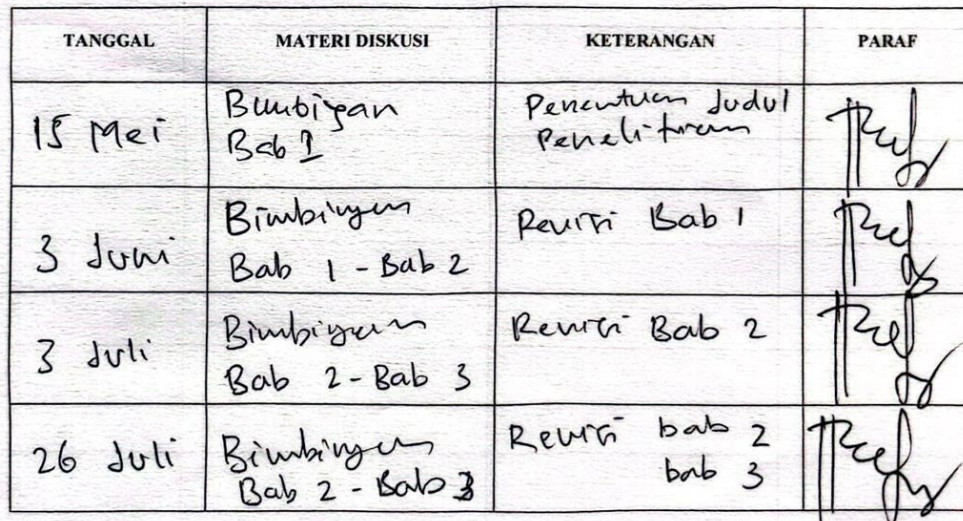 TANGGAL MATERI DISKUSI KETERANGAN PARAF
15 Mei
Bimbingan
Bab 1
Penentuan Judul
Penelitian
3 Juni
Bimbingan
Bab 1 - Bab 2
Revisi Bab 1
3 Juli
Bimbingan
Bab 2 - Bab 3
Revisi Bab 2
26 Juli
Bimbingan
Bab 2 - Bab 3
Revisi bab 2
bab 3